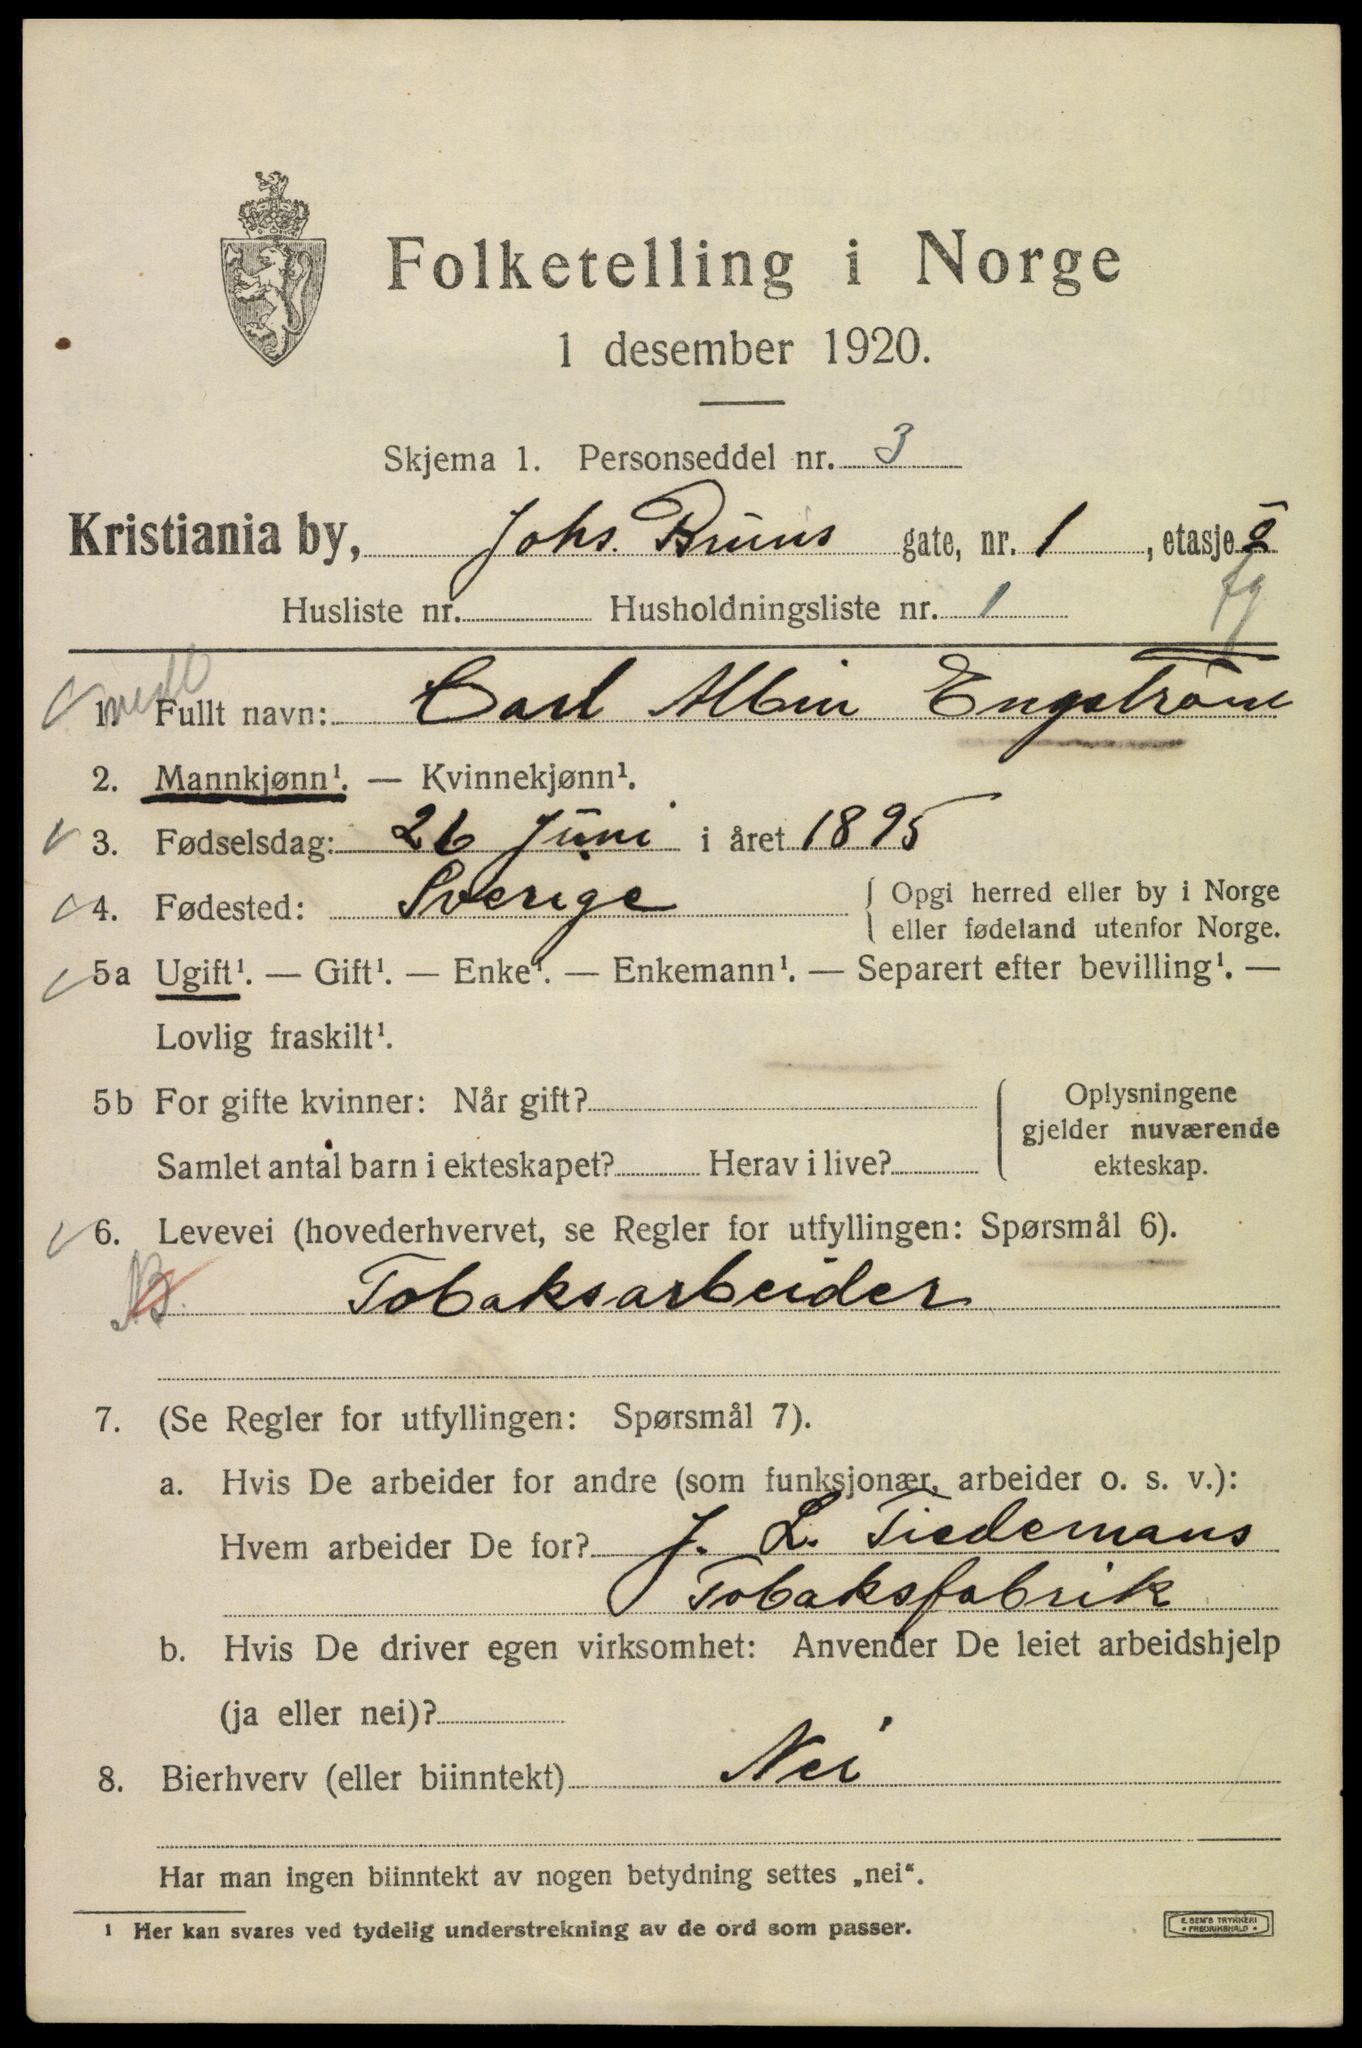 Folketelling i Norge
1 desember 1920.
Skjema 1. Personseddel nr. 3
Kristiania by, Johs. Bruns gate, nr. 1, etasje
Husliste nr. Husholdningsliste nr. 1
1. Fullt navn: Carl Albin Engström
2. Mannkjønn¹. — Kvinnekjønn¹.
3. Fødselsdag: 26 Juni i året 1895
4. Fødested: Sverige { Opgi herred eller by i Norge
eller fødeland utenfor Norge.
5a Ugift¹. — Gift¹. — Enke¹. — Enkemann¹. — Separert efter bevilling¹. —
Lovlig fraskilt¹.
5b For gifte kvinner: Når gift?
Samlet antal barn i ekteskapet? Herav i live?
Oplysningene
gjelder nuværende
ekteskap.
6. Levevei (hovederhvervet, se Regler for utfyllingen: Spørsmål 6).
Tobaksarbeider
7. (Se Regler for utfyllingen: Spørsmål 7).
a. Hvis De arbeider for andre (som funksjonær, arbeider o. s. v.):
Hvem arbeider De for? J. L. Tiedemans
Tobaksfabrik
b. Hvis De driver egen virksomhet: Anvender De leiet arbeidshjelp
(ja eller nei)?
8. Bierhverv (eller biinntekt) Nei
Har man ingen biinntekt av nogen betydning settes „nei“.
¹ Her kan svares ved tydelig understrekning av de ord som passer.
E. SEM'S TRYKKERI
• FREDRIKSHALD •